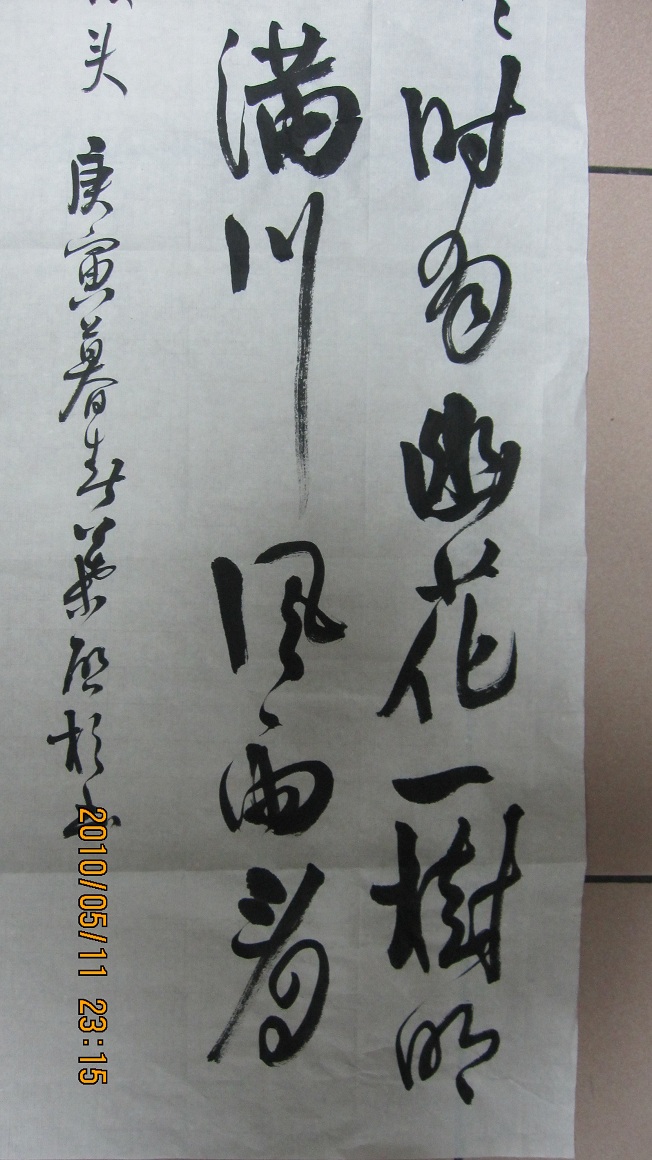 时有幽花一樹明
满川风雨看
头 庚寅暮春葉啟杉书
2010/05/11 23:15